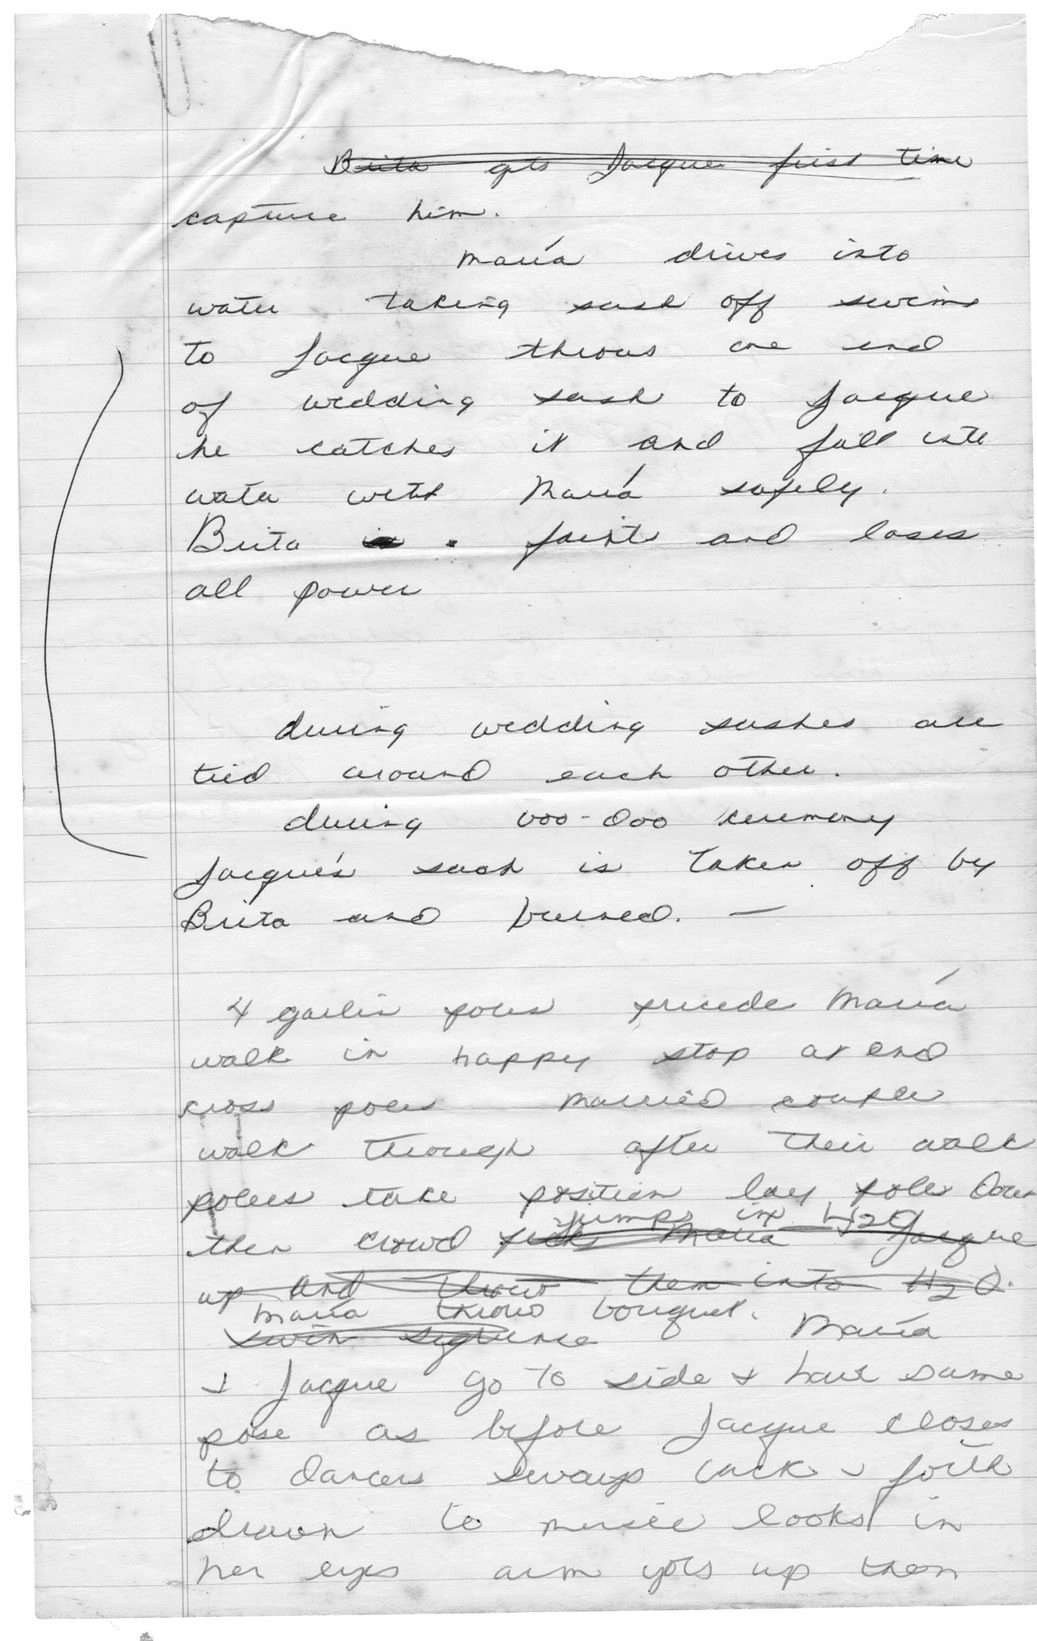 Brita gets Jacque first time
capture him.
María drives into
water taking sash off swims
to Jacque throws one end
of wedding sash to Jacque
he catches it and fall into
water with María safely.
Brita is . faints and loses
all power
during wedding sashes are
tied around each other.
during voo-doo ceremony
Jacque's sash is taken off by
Brita and burned. —
4 poles precede María
walk in happy stop at end
cross poles married couple
walk through after their walk
polers take position lay poles down
jumps in H2O
then crowd pick María Jacque
up and throw them into H2O.
María throws bouquet.
swim sequence María
& Jacque go to side & have same
pose as before Jacque closes
to dancers sways back & forth
drawn to music looks in
her eyes arm goes up then